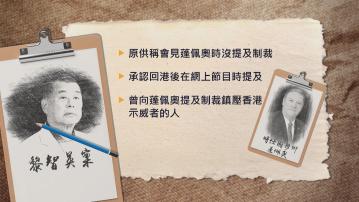 原供稱會見蓬佩奧時沒提及制裁
承認回港後在網上節目時提及
曾向蓬佩奧提及制裁鎮壓香港
示威者的人
黎智英案
時任國務卿
蓬佩奧